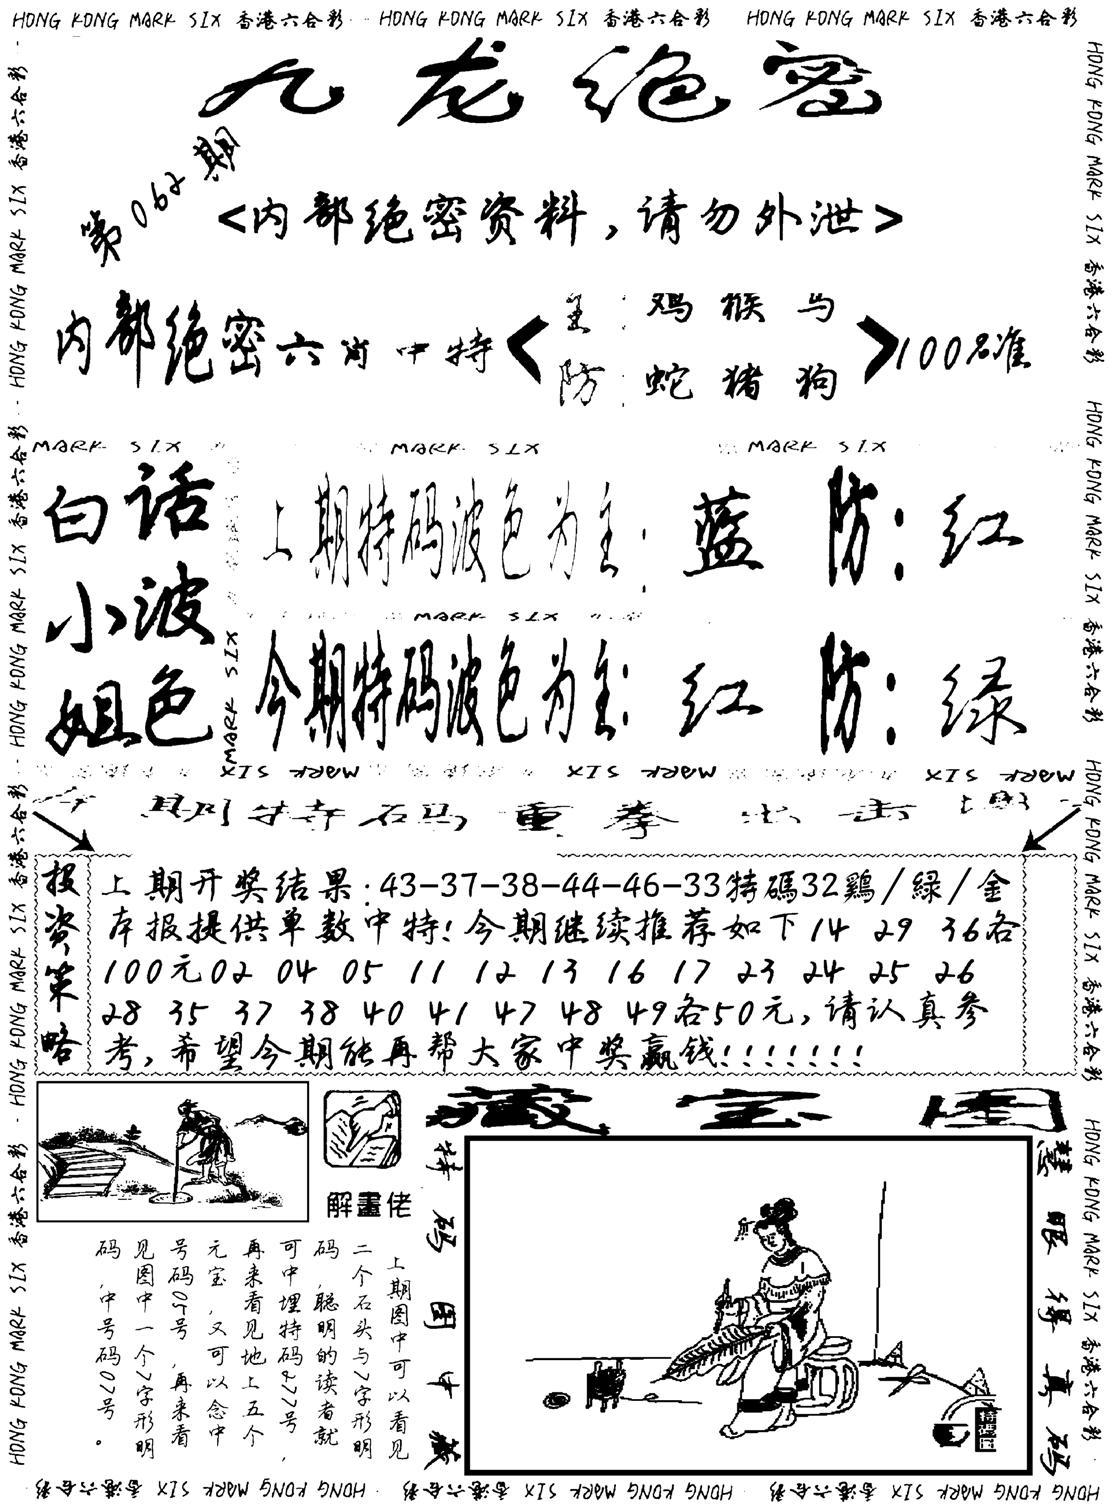 HONG KONG MARK SIX 香港六合彩 HONG KONG MARK SIX 香港六合彩 HONG KONG MARK SIX 香港六合彩
九龙绝密
第062期
<内部绝密资料,请勿外泄>
内部绝密六肖中特
主:鸡猴马
防:蛇猪狗
100%准
MARK SIX MARK SIX MARK SIX
白话
小波
姐色
上期特码波色为主:蓝 防:红
MARK SIX
今期特码波色为主:红 防:绿
MARK SIX
MARK SIX MARK SIX MARK SIX
今期特码重拳出击
投资策略
上期开奖结果:43-37-38-44-46-33特碼32鷄/緑/金
本报提供单数中特!今期继续推荐如下14 29 36各
100元02 04 05 11 12 13 16 17 23 24 25 26
28 35 37 38 40 41 47 48 49各50元,请认真参
考,希望今期能再帮大家中奖赢钱!!!!!!!
解畫佬
上期图中可以看见
二个石头与7字形明
码,聪明的读者就
可中埋特码277号,
再来看见地上五个
元宝,又可以念中
号码05号,再来看
见图中一个7字形明
码,中号码07号。
藏宝图
特码图中藏
慧眼得真码
HONG KONG MARK SIX 香港六合彩 HONG KONG MARK SIX 香港六合彩 HONG KONG MARK SIX 香港六合彩
HONG KONG MARK SIX 香港六合彩 HONG KONG MARK SIX 香港六合彩 HONG KONG MARK SIX 香港六合彩 HONG KONG MARK SIX 香港六合彩
HONG KONG MARK SIX 香港六合彩 HONG KONG MARK SIX 香港六合彩 HONG KONG MARK SIX 香港六合彩 HONG KONG MARK SIX 香港六合彩